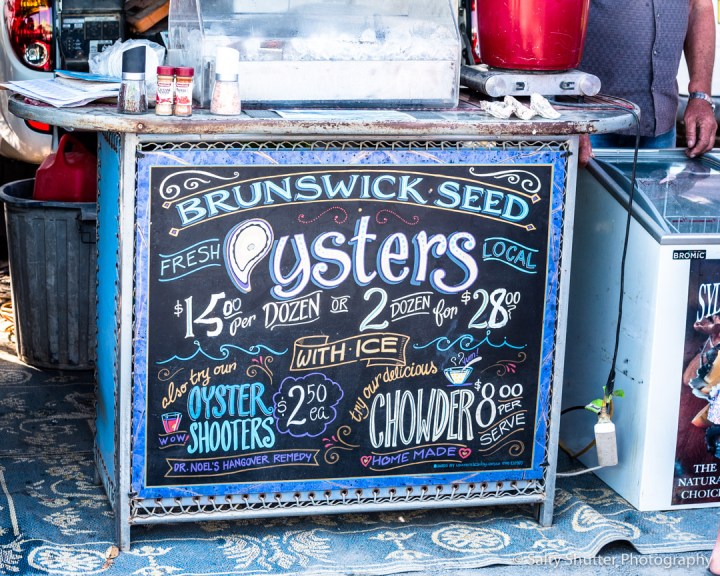 BRUNSWICK SEED
FRESH Oysters LOCAL
$15.00 Per DOZEN OR 2 DOZEN for $28.00
WITH ICE
also try our
OYSTER
SHOOTERS
$2.50
ea
WOW
DR. NOEL'S HANGOVER REMEDY
try our delicious
YUM!
CHOWDER
$8.00
PER
SERVE
HOME MADE
BROMIC
THE
NATURA
CHOICE
Salty Shutter Photography